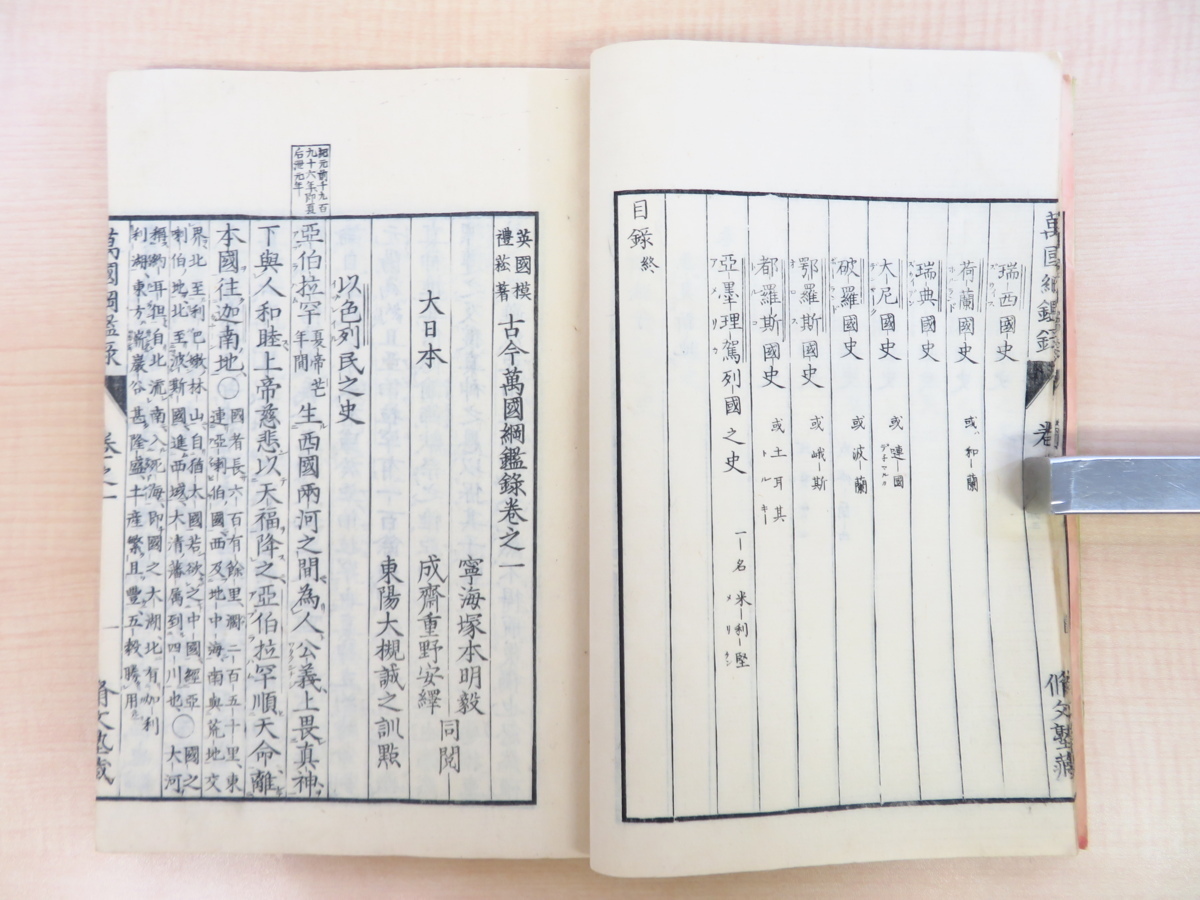 瑞西國史
荷蘭國史 或和蘭
瑞典國史
大尼國史 或嗹國
破羅國史 或波蘭
鄂羅斯國史 或峨斯
都羅斯國史 或土耳其
亞墨理駕列國之史 一名米利堅
目錄終
英國模
禮菘著
古今萬國綱鑑錄卷之一
大日本
寧海塚本明毅
成齋重野安繹
同閱
東陽大槻誠之訓點
以色列民之史
紀元前千九百
九十六年即夏
后泄元年
亞伯拉罕夏帝芒年間生西國兩河之間為人公義上畏真神
下與人和睦上帝慈悲以天福降之亞伯拉罕順天命離
本國往迦南地
國者長六百有餘里濶二百五十里東
連亞喇伯國西及地中海南與荒地交
界北至利巴嫩林山自猶太國若欲之中國經亞
喇伯地北至波斯國進西域大清藩屬到四川也
國之
大河
稱約耳但自北流南入死海即國之大湖北有加利
利湖東方
巖谷甚隆盛土產繁且豐五穀勝用
萬國綱鑑錄
卷之一
脩文塾藏
萬國綱鑑錄
脩文塾藏